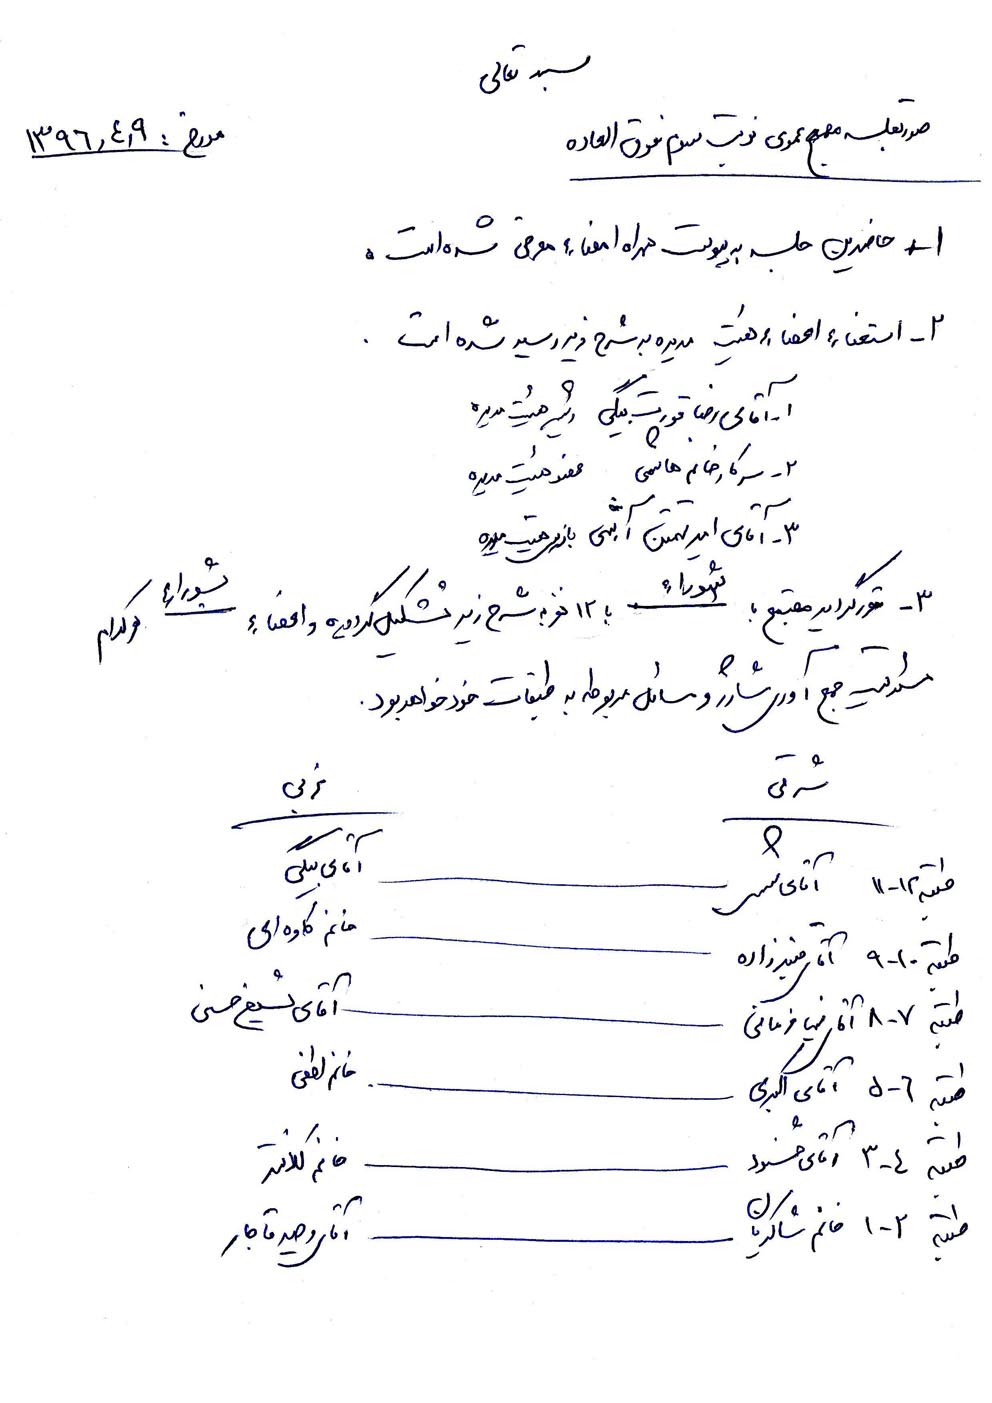 بسمه تعالی
صورتجلسه مجمع عمومی نوبت سوم فوق العاده
مورخ: ۱۳۹۶٫۴٫۹
۱- حاضرین جلسه به پیوست همراه امضاء معرفی شده است.
۲- استعفاء اعضاء هیئت مدیره به شرح زیر رسید شده است.
۱- آقای رضا قورت بیگی رئیس هیئت مدیره
۲- سرکار خانم هاشمی عضو هیئت مدیره
۳- آقای امیر تهمتن آبشی بازرس هیئت مدیره
۳- مقرر گردید مجتمع با شوراء با ۱۲ نفر به شرح زیر تشکیل گردیده و اعضاء شوراء هرکدام
مسئولیت جمع آوری شارژ و مسائل مربوطه به طبقات خود خواهد بود.
شرقی غربی
طبقه ۱۲-۱۱ آقای شمس آقای بیگی
طبقه ۱۰-۹ آقای مفیدزاده خانم کاوه ای
طبقه ۷-۸ آقای ضیا فرمانی آقای شیخ حسنی
طبقه ۶-۵ آقای اکبری خانم لطفی
طبقه ۴-۳ آقای خشنود خانم کلانتر
طبقه ۲-۱ خانم شاکریان آقای وحید قاجار